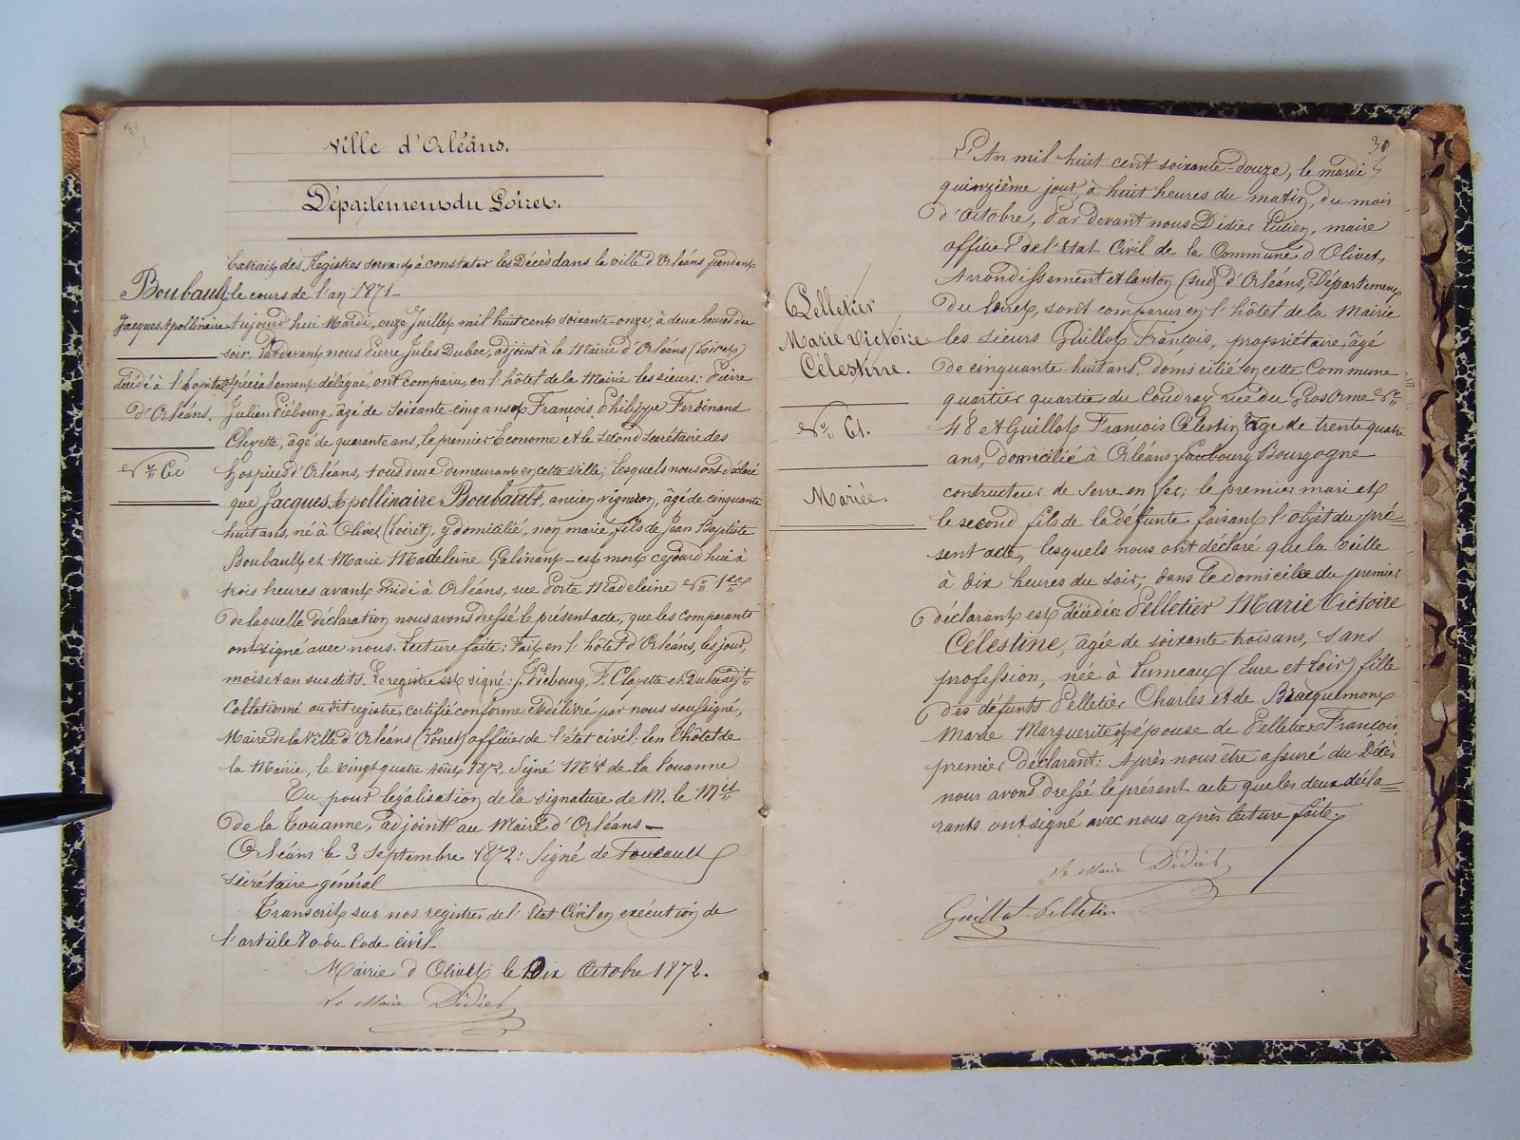 Ville d'Orléans.
Département du Loiret.
Extrait des Registres servant à constater les Décès dans la ville d'Orléans pendant
le cours de l'an 1871
Boubault
Jacques Apollinaire
décédé à l'hôpital
d'Orléans.
Aujourd'hui Mardi, onze Juillet mil huit cent soixante-onze, à deux heures du
soir. Pardevant nous Pierre Jules Dubec, adjoint à la Mairie d'Orléans (Loiret)
spécialement délégué, ont comparu en l'hôtel de la Mairie les sieurs: Pierre
Julien Piébourg, âgé de soixante-cinq ans et François Philippe Ferdinand
Clovette, âgé de quarante ans, le premier Econome et le second secrétaire des
hospices d'Orléans, tous deux demeurant en cette ville, lesquels nous ont déclaré
que Jacques Apollinaire Boubault, ancien vigneron, âgé de cinquante
huit ans, né à Olivet (Loiret), y domicilié, non marié, fils de Jean Baptiste
Boubault et Marie Madeleine Galinant est mort cejourd'hui à
trois heures avant midi à Orléans, rue Porte Madeleine
de laquelle déclaration nous avons dressé le présent acte, que les comparants
ont signé avec nous. Lecture faite. Fait en l'hôtel d'Orléans, les jour,
mois et an susdits. Le registre est signé:
Collationné au dit registre, certifié conforme et délivré par nous soussigné,
Maire de la Ville d'Orléans (Loiret) officier de l'état civil. En l'hôtel de
la Mairie, le vingt quatre août 1872. Signé Mis de la Touanne
Vu pour légalisation de la signature de M. le Mis
de la Touanne, adjoint au Maire d'Orléans
Orléans le 3 Septembre 1872: Signé de Foucault
secrétaire général
Transcrit sur nos registres de l'Etat Civil en exécution de
l'article 80 du Code civil.
Mairie d'Olivet le Dix Octobre 1872.
Le Maire Didier
30
L'An mil huit cent soixante-douze, le mardi
quinzième jour, à huit heures du matin, du mois
d'Octobre, Par devant nous Didier Julien, maire
officier de l'état Civil de la Commune d'Olivet,
Arrondissement et canton (sud) d'Orléans, Département
du Loiret, sont comparus en l'hôtel de la Mairie
Pelletier
Marie Victoire
Célestine.
No 61.
Mariée
les sieurs Guillot François, propriétaire, âgé
de cinquante huit ans, domicilié en cette Commune
quartier quartier du Coudray rue du Gros Orme No
48 et Guillot François Célestin âgé de trente quatre
ans, domicilié à Orléans faubourg Bourgogne
constructeur de serre en fer; le premier mari et
le second fils de la défunte faisant l'objet du pré=
sent acte, lesquels nous ont déclaré que la veille
à dix heures du soir, dans le domicile du premier
déclarant est décédée Pelletier Marie Victoire
Célestine, âgée de soixante trois ans, sans
profession, née à Lumeau (Eure et Loir) fille
des défunts Pelletier Charles et de Bracquemont
Marie Marguerite et épouse de Pelletier François
premier déclarant: Après nous être assuré du Décès
nous avons dressé le présent acte que les deux décla=
rants ont signé avec nous après lecture faite.
Le Maire Didier
Guillot Pelletier